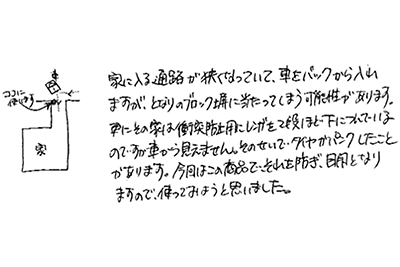 ココに
使います
家
家に入る通路が狭くなっていて、車をバックから入れ
ますが、となりのブロック塀に当たってしまう可能性があります。
更にその家は衝突防止用にレンガを2段ほど下についている
のですが車から見えません。そのせいで、タイヤがパンクしたこと
があります。今回はこの商品で、それを防ぎ、目印となり
ますので、使ってみようと思いました。